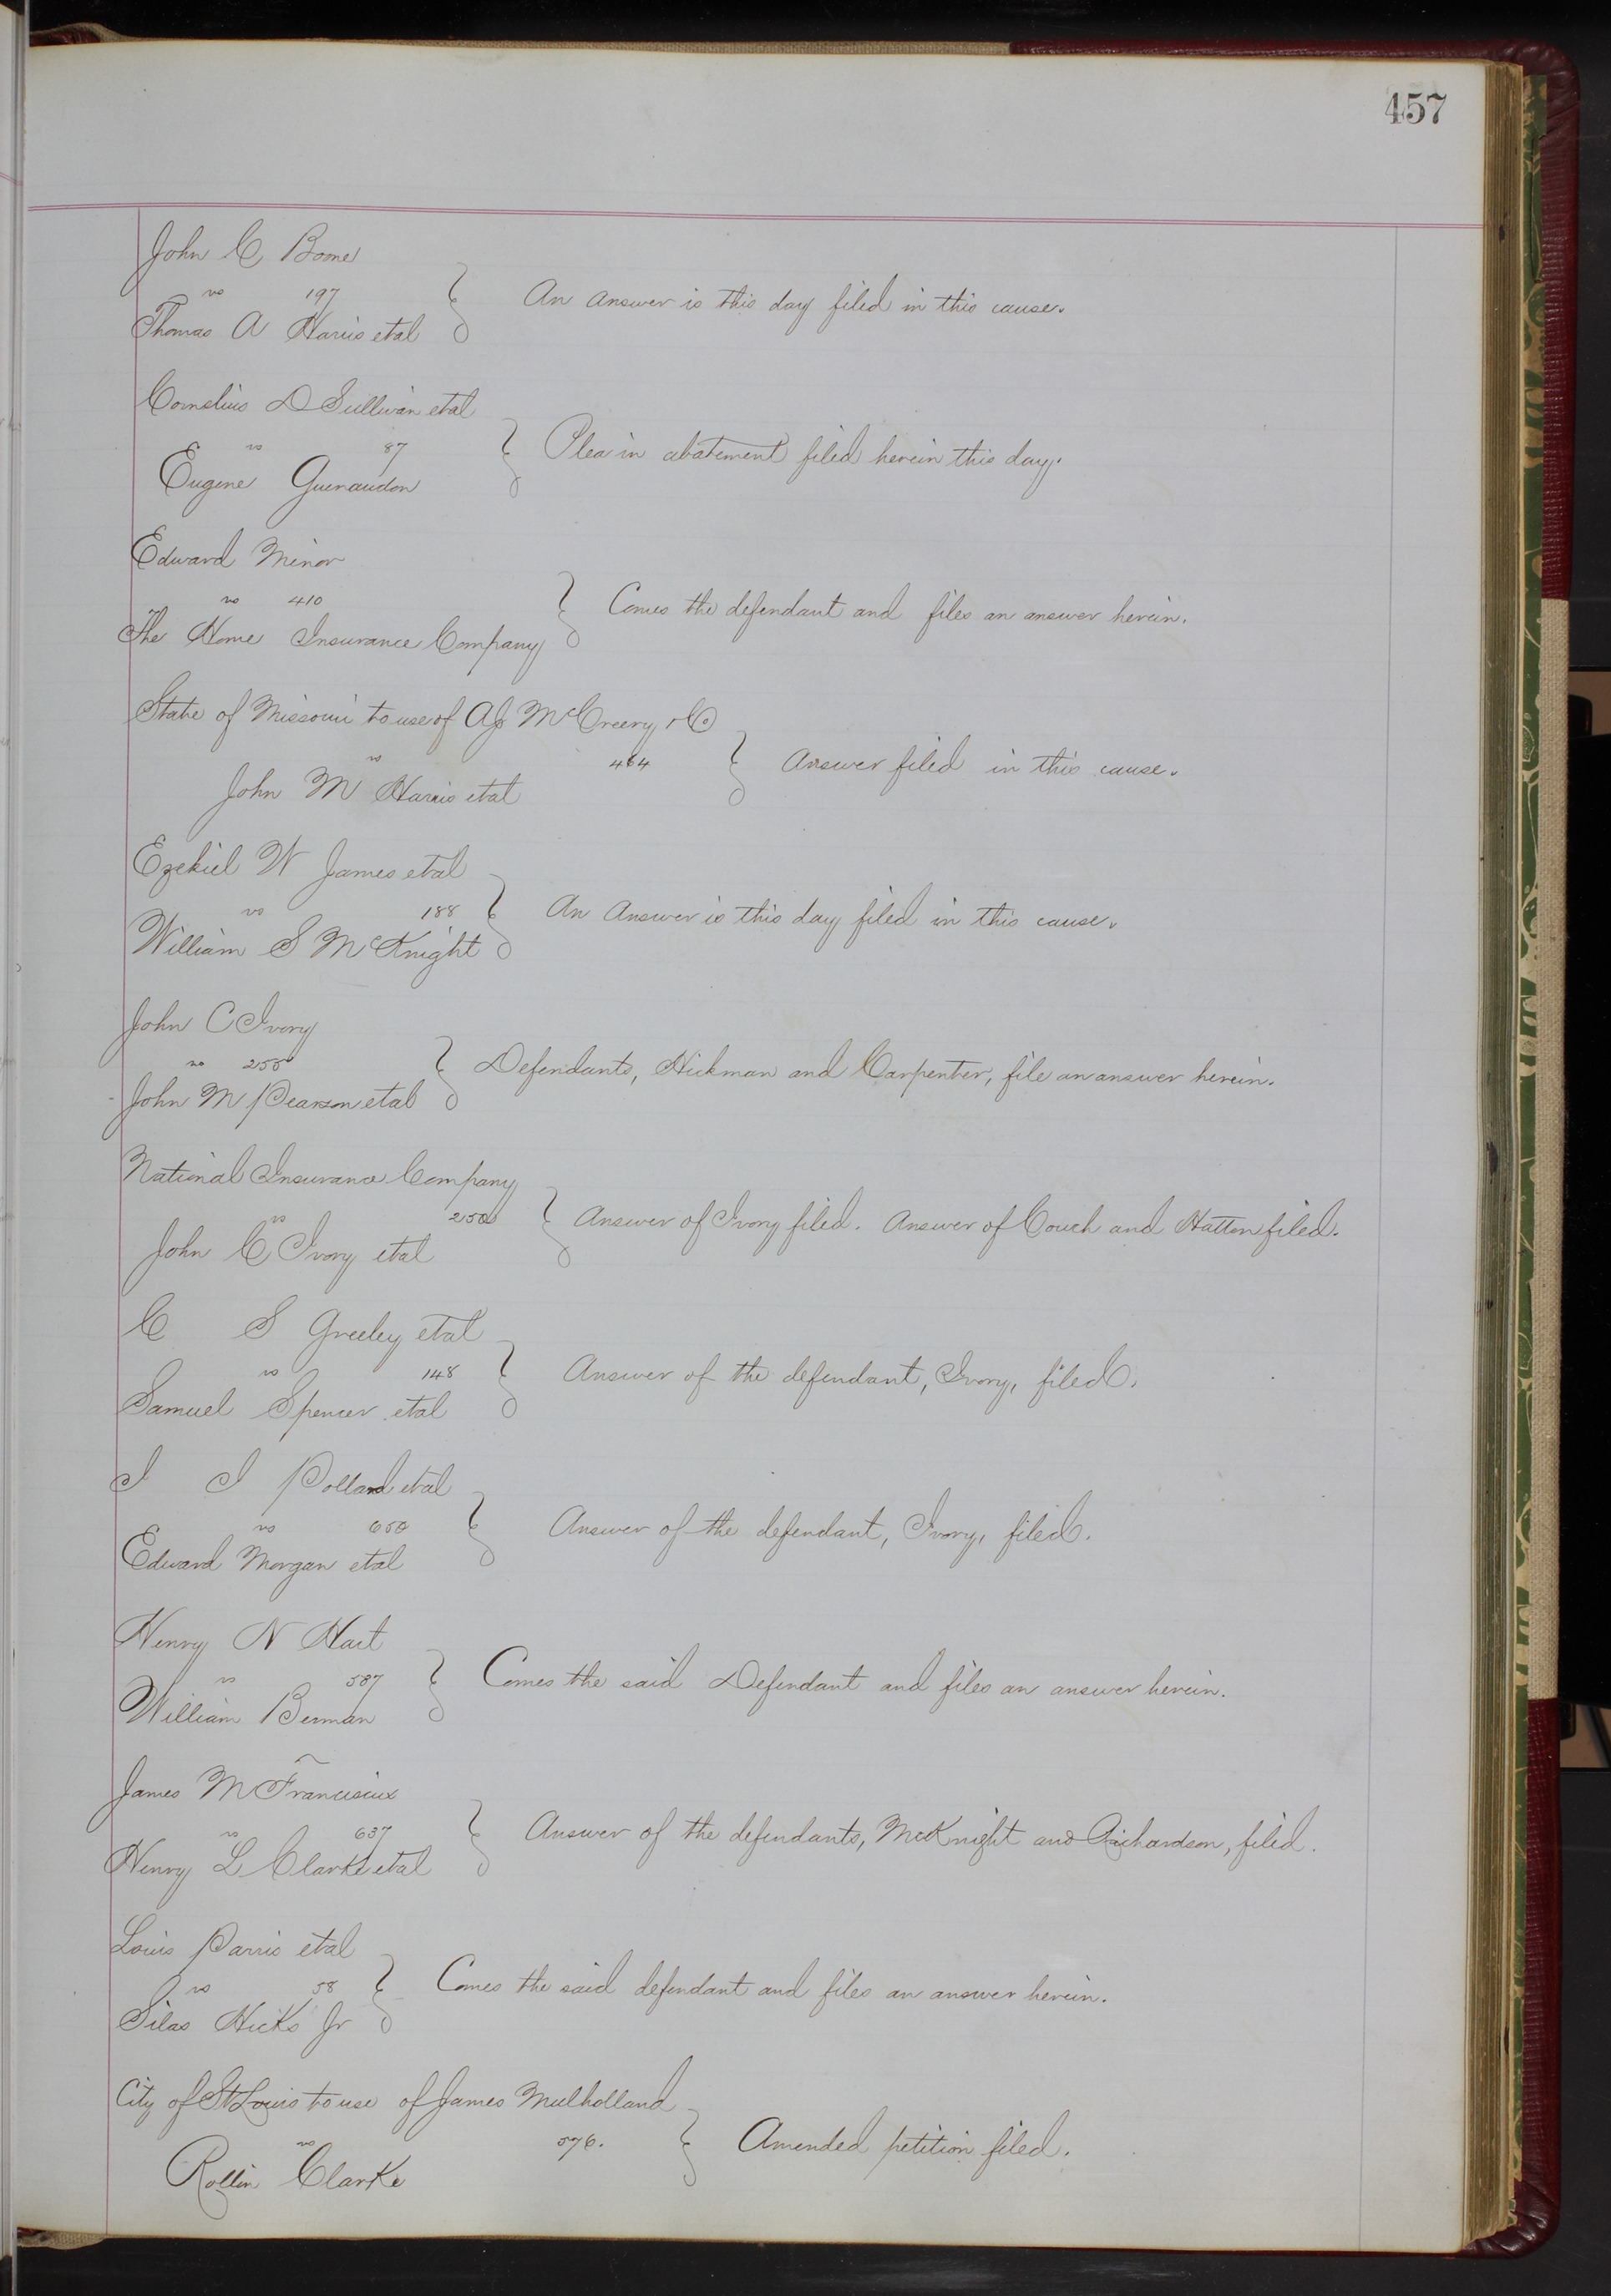 457
John C Boone
vs 197
Thomas A Harris etal
An Answer is this day filed in this cause.
Cornelius D Sullivan etal
vs 87
Eugene Guenaudon
Plea in abatement filed herein this day.
Edward Minor
vs 410
The Home Insurance Company
Comes the defendant and files an answer herein.
State of Missouri to use of A J McCreery & Co
vs 464
John M Harris etal
Answer filed in this cause.
Ezekiel W James etal
vs 188
William S McKnight
An Answer is this day filed in this cause.
John C Ivory
vs 255
John M Pearson etal
Defendants, Hickman and Carpenter, file an answer herein.
National Insurance Company
vs 250
John C Ivory etal
Answer of Ivory filed. Answer of Couch and Hatton filed.
C S Greeley etal
vs 148
Samuel Spencer etal
Answer of the defendant, Ivory, filed.
I I Pollard etal
vs 650
Edward Morgan etal
Answer of the defendant, Ivory, filed.
Henry N Hart
vs 587
William Berman
Comes the said Defendant and files an answer herein.
James M Franciscus
vs 637
Henry L Clarke etal
Answer of the defendants, McKnight and Richardson, filed.
Louis Parris etal
vs 58
Silas Hicks Jr
Comes the said defendant and files an answer herein.
City of St Louis to use of James Mulholland
vs 576.
Rollin Clarke
Amended petition filed.